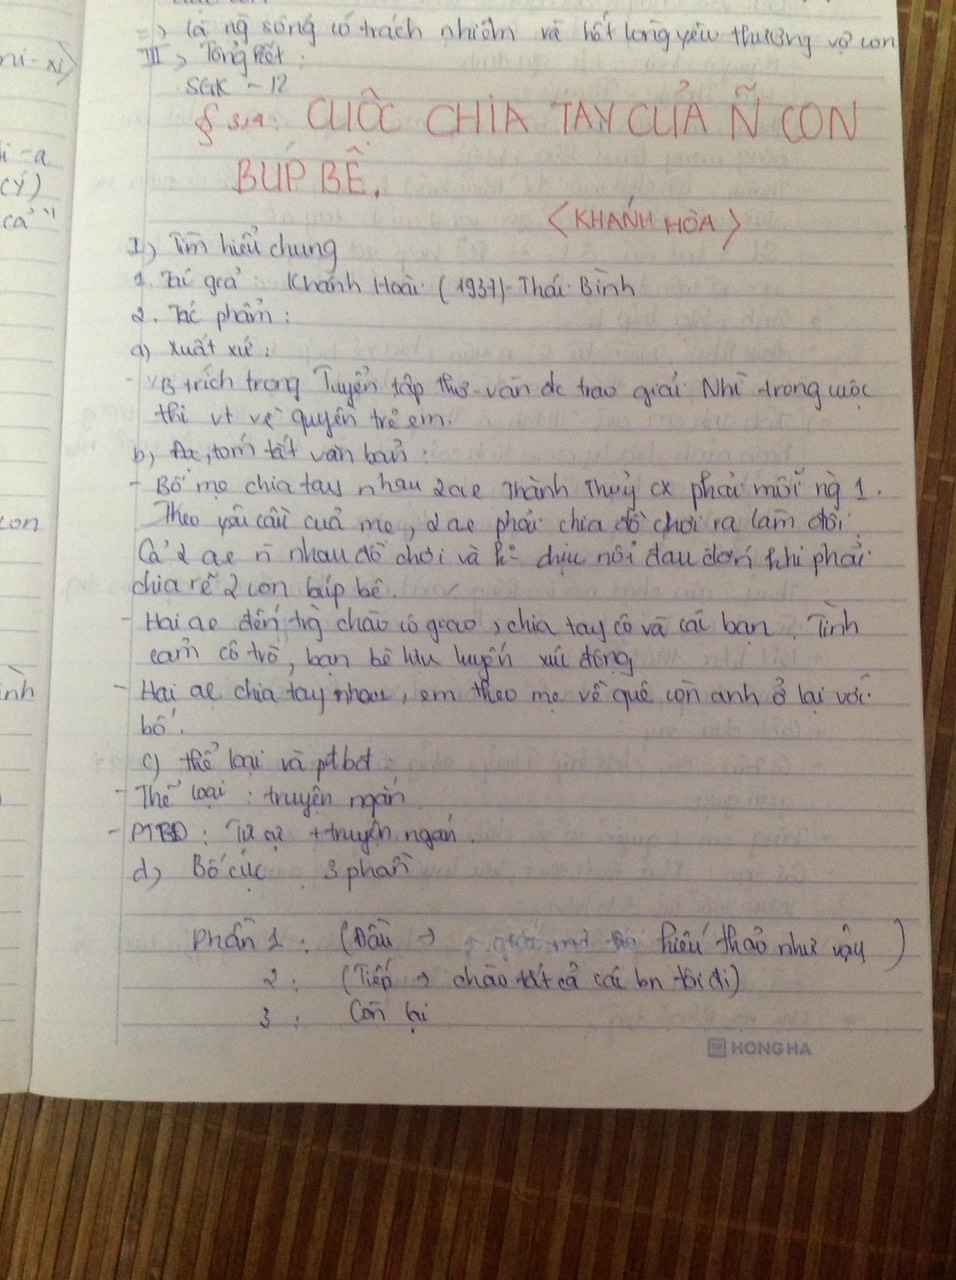 => là ng sống có trách nhiệm và hết lòng yêu thương vợ con
III, Tổng kết:
SGK - 12
ni-xi>
§ 3,4: CUỘC CHIA TAY CỦA Ñ CON
BÚP BÊ.
i-a
cý)
cả"
<KHÁNH HÒA>
I, Tìm hiểu chung
1. Tác giả: Khánh Hoài (1937)-Thái Bình
2. Tác phẩm:
a) Xuất xứ:
- VB trích trong Tuyển tập thơ-văn đc trao giải Nhì trong cuộc
thi vt về quyền trẻ em.
b, Đọc, tóm tắt văn bản:
- Bố mẹ chia tay nhau 2ae Thành Thuỷ cx phải mỗi ng 1.
Theo yêu cầu của mẹ, 2 ae phải chia đồ chơi ra làm đôi
Cả 2 ae nhau đồ chơi và k chịu nổi đau đớn khi phải
con
chia rẽ 2 con búp bê.
- Hai ae đến trg chào cô giáo, chia tay cô và các bạn. Tình
cảm cô trò, bạn bè lưu luyến xúc động
- Hai ae chia tay nhau, em theo mẹ về quê còn anh ở lại với
ình
bố.
c) thể loại và ptbđ
- Thể loại: truyện ngắn
- PTBĐ: Tự sự + truyện ngắn.
d, Bố cục: 3 phần
Phần 1: (Đầu -> hiếu thảo như vậy)
2: (Tiếp -> chào tất cả các bn tôi đi)
3: Còn lại
HONG HA